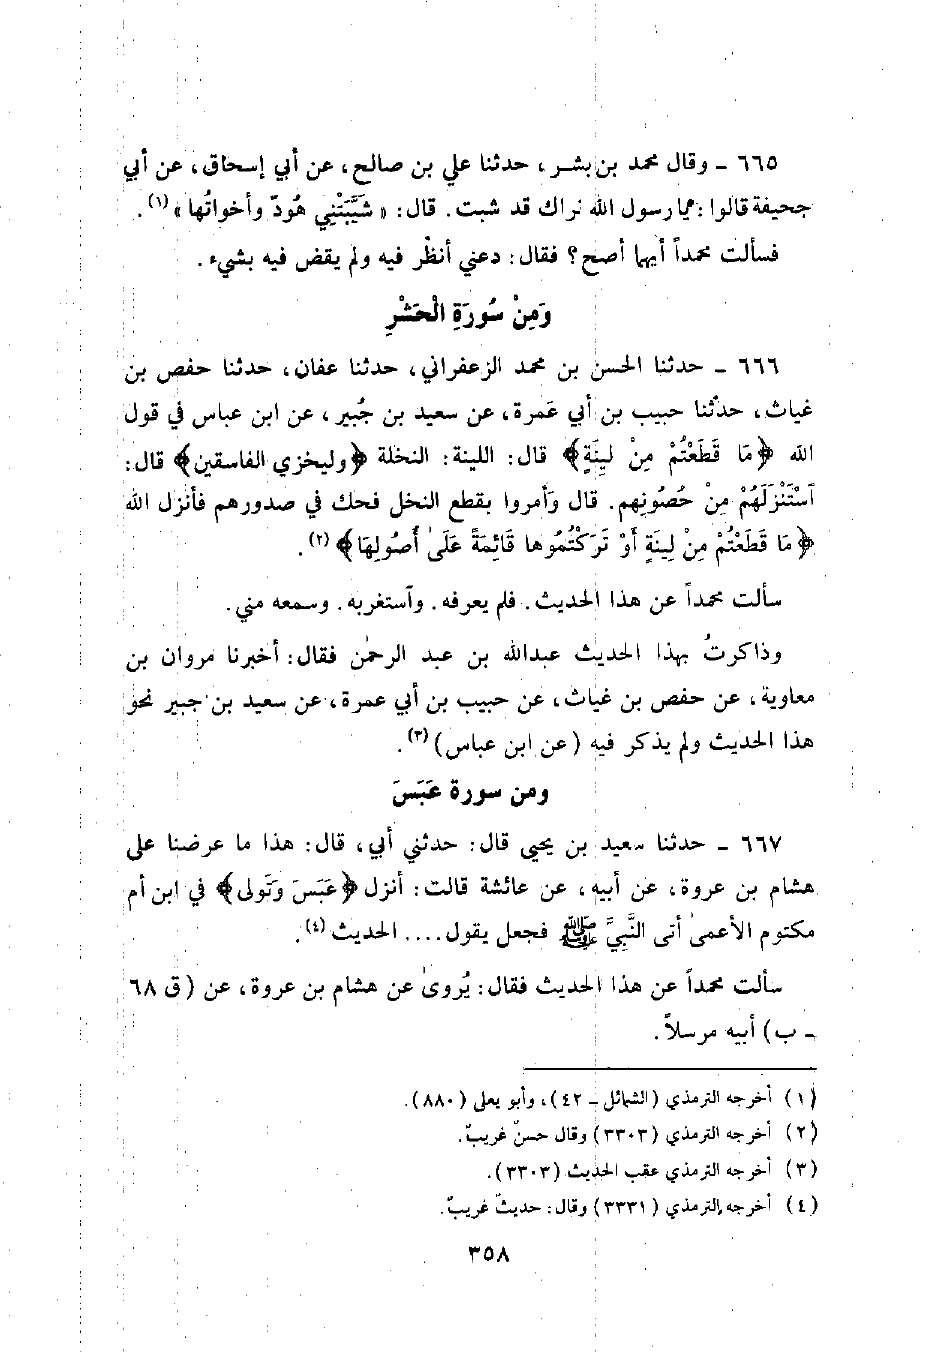 ٦٦٥ ـ وقال محمد بن بشر، حدثنا علي بن صالح، عن أبي إسحاق، عن أبي
جحيفة قالوا: يا رسول الله نراك قد شبت. قال: «شَيَّبَتْنِي هُودٌ وأخواتُها»(١).
فسألت محمداً أيهما أصح؟ فقال: دعني أنظُر فيه ولم يقض فيه بشيء.
وَمِنْ سُورَةِ الْحَشْرِ
٦٦٦ ـ حدثنا الحسن بن محمد الزعفراني، حدثنا عفان، حدثنا حفص بن
غياث، حدثنا حبيب بن أبي عَمرة، عن سعيد بن جُبير، عن ابن عباس في قول
الله ﴿مَا قَطَعْتُمْ مِنْ لِينَةٍ﴾ قال: اللينة: النخلة ﴿وليخزي الفاسقين﴾ قال:
آسْتَنْزَلَهُمْ مِنْ حُصُونِهم. قال وَأمروا بقطع النخل فحك في صدورهم فأنزل الله
﴿مَا قَطَعْتُمْ مِنْ لِينَةٍ أَوْ تَرَكْتُمُوها قَائِمَةً عَلَىٰ أُصُولِهَا﴾(٢).
سألت محمداً عن هذا الحديث. فلم يعرفه. وآستغربه. وسمعه مني.
وذاكرتُ بهذا الحديث عبدالله بن عبد الرحمٰن فقال: أخبرنا مروان بن
معاوية، عن حفص بن غياث، عن حبيب بن أبي عمرة، عن سعيد بن جبير نحو
هذا الحديث ولم يذكر فيه (عن ابن عباس)(٣).
ومن سورة عَبَسَ
٦٦٧ ـ حدثنا سعيد بن يحيى قال: حدثني أبي، قال: هذا ما عرضنا على
هشام بن عروة، عن أبيه، عن عائشة قالت: أنزل ﴿عَبَسَ وَتَولى﴾ في ابن أم
مكتوم الأعمىٰ أتى النَّبِيَّ ﷺ فجعل يقول.... الحديث(٤).
سألت محمداً عن هذا الحديث فقال: يُروىٰ عن هشام بن عروة، عن (ق ٦٨
ـ ب) أبيه مرسلاً.
(١) أخرجه الترمذي (الشمائل ـ ٤٢)، وأبو يعلى (٨٨٠).
(٢) أخرجه الترمذي (٣٣٠٣) وقال حسنٌ غريبٌ.
(٣) أخرجه الترمذي عقب الحديث (٣٣٠٣).
(٤) أخرجه الترمذي (٣٣٣١) وقال: حديثٌ غريبٌ.
٣٥٨